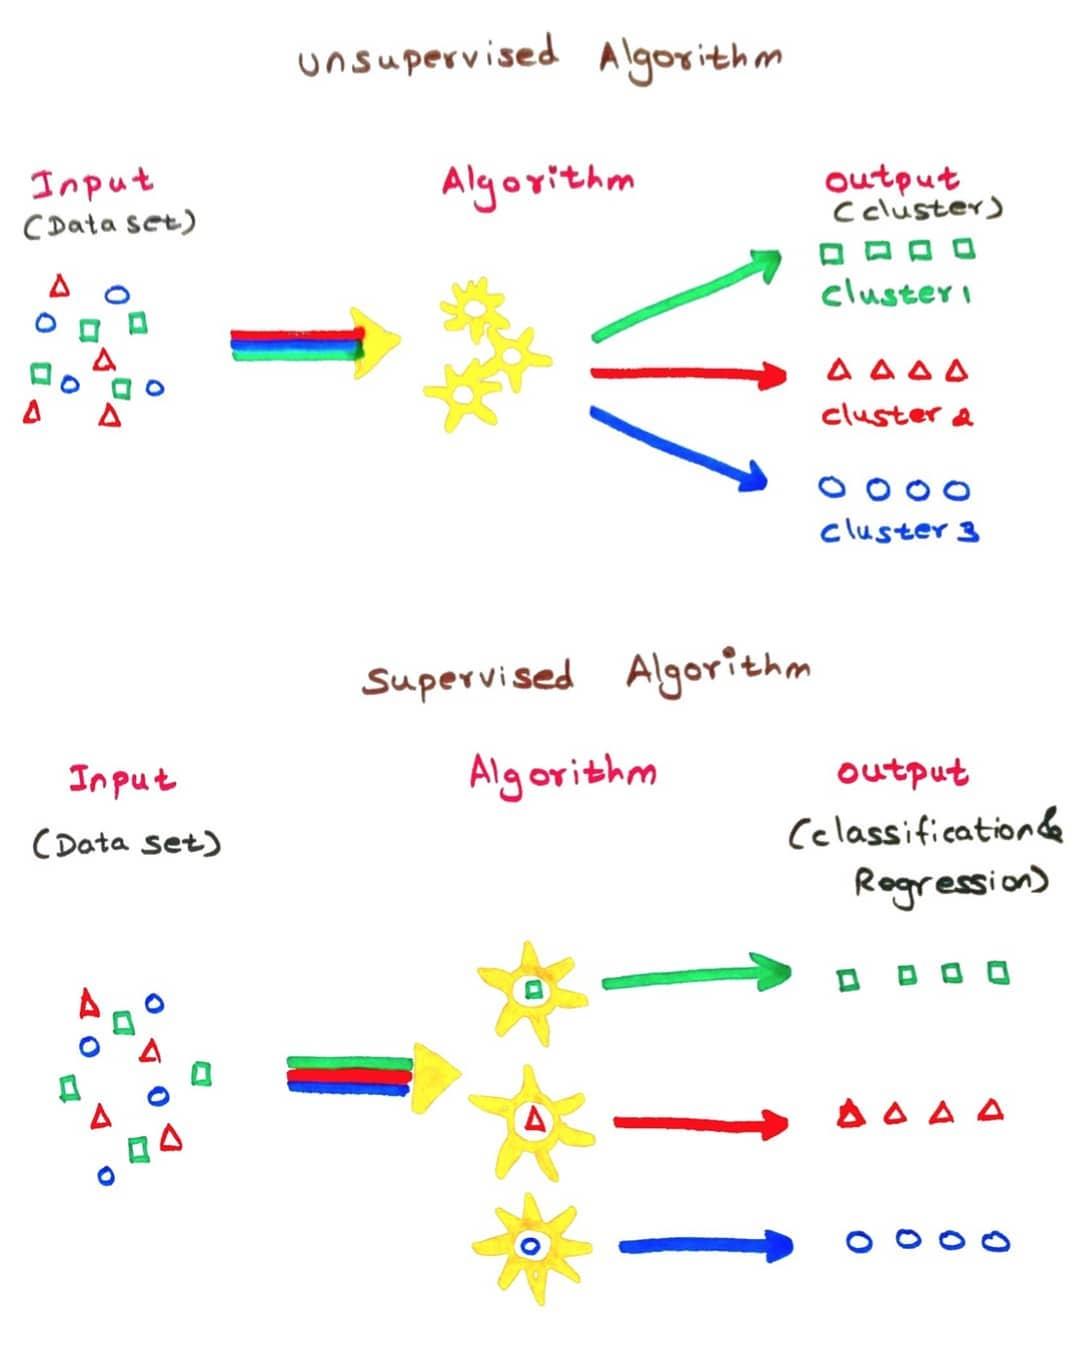 unsupervised Algorithm
Input
(Data set)
Algorithm
output
(cluster)
cluster 1
cluster 2
cluster 3
Supervised Algorithm
Input
(Data set)
Algorithm
output
(classification &
Regression)